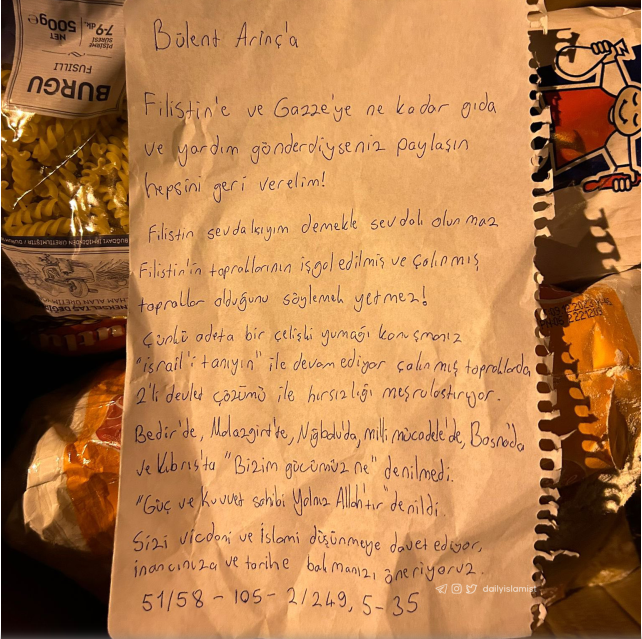 Bülent Arınç'a
Filistin'e ve Gazze'ye ne kadar gıda
ve yardım gönderdiyseniz paylaşın
hepsini geri verelim!
Filistin sevdalısıyım demekle sevdalı olunmaz
Filistin'in topraklarının işgal edilmiş ve çalınmış
topraklar olduğunu söylemek yetmez!
Çünkü adeta bir çelişki yumağı konuşmanız
"israil'i tanıyın" ile devam ediyor çalınmış topraklarda
2'li devlet çözümü ile hırsızlığı meşrulaştırıyor.
Bedir'de, Malazgirt'te, Niğbolu'da, milli mücadele'de, Bosna'da
ve Kıbrıs'ta "Bizim gücümüz ne" denilmedi.
"Güç ve Kuvvet sahibi Yalnız Allah'tır" denildi.
Sizi vicdani ve İslami düşünmeye davet ediyor,
inancınıza ve tarihe bakmanızı öneriyoruz.
51/58 - 105 - 2/249, 5 - 35
dailyislamist
BURGU
FUSILLI
PİŞİRME
SÜRESİ
7-9 dk.
NET
500g e